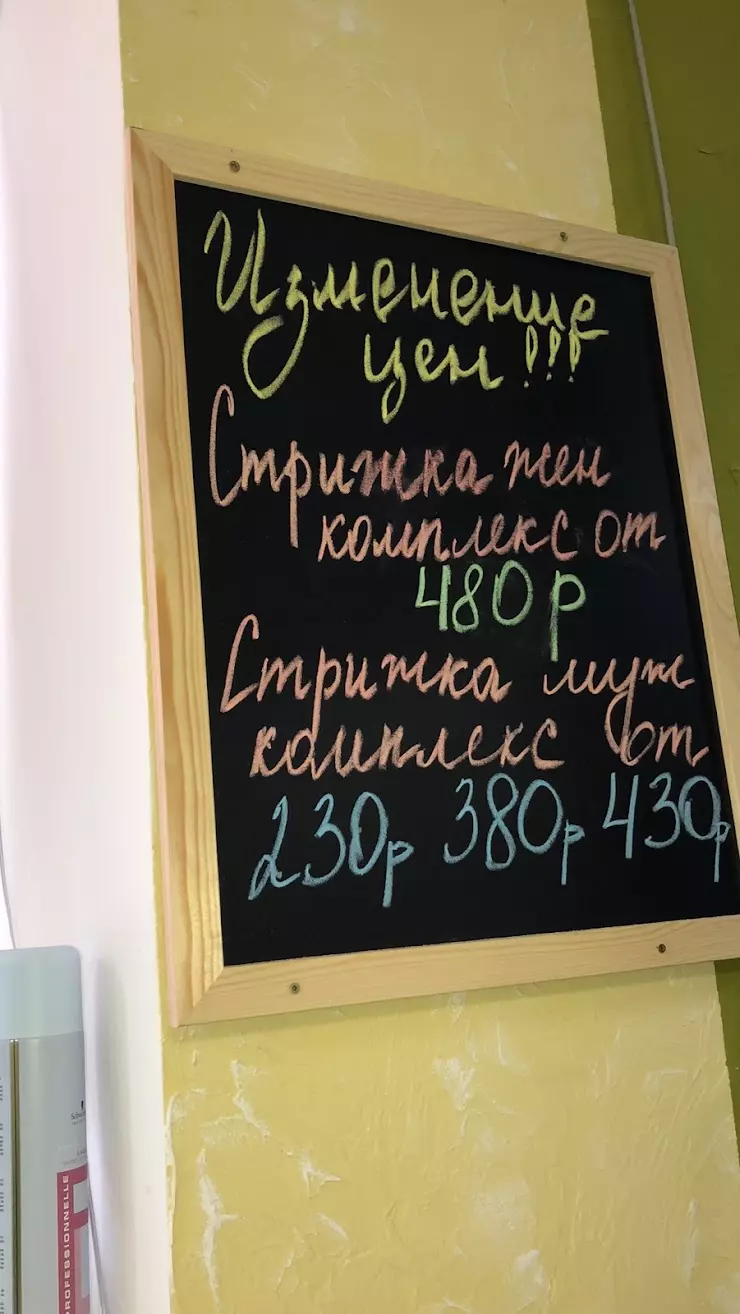 Изменение
цен!!!
Стрижка жен
комплекс от
480р
Стрижка муж
комплекс от
230р 380р 430р
PROFESSIONNELLE